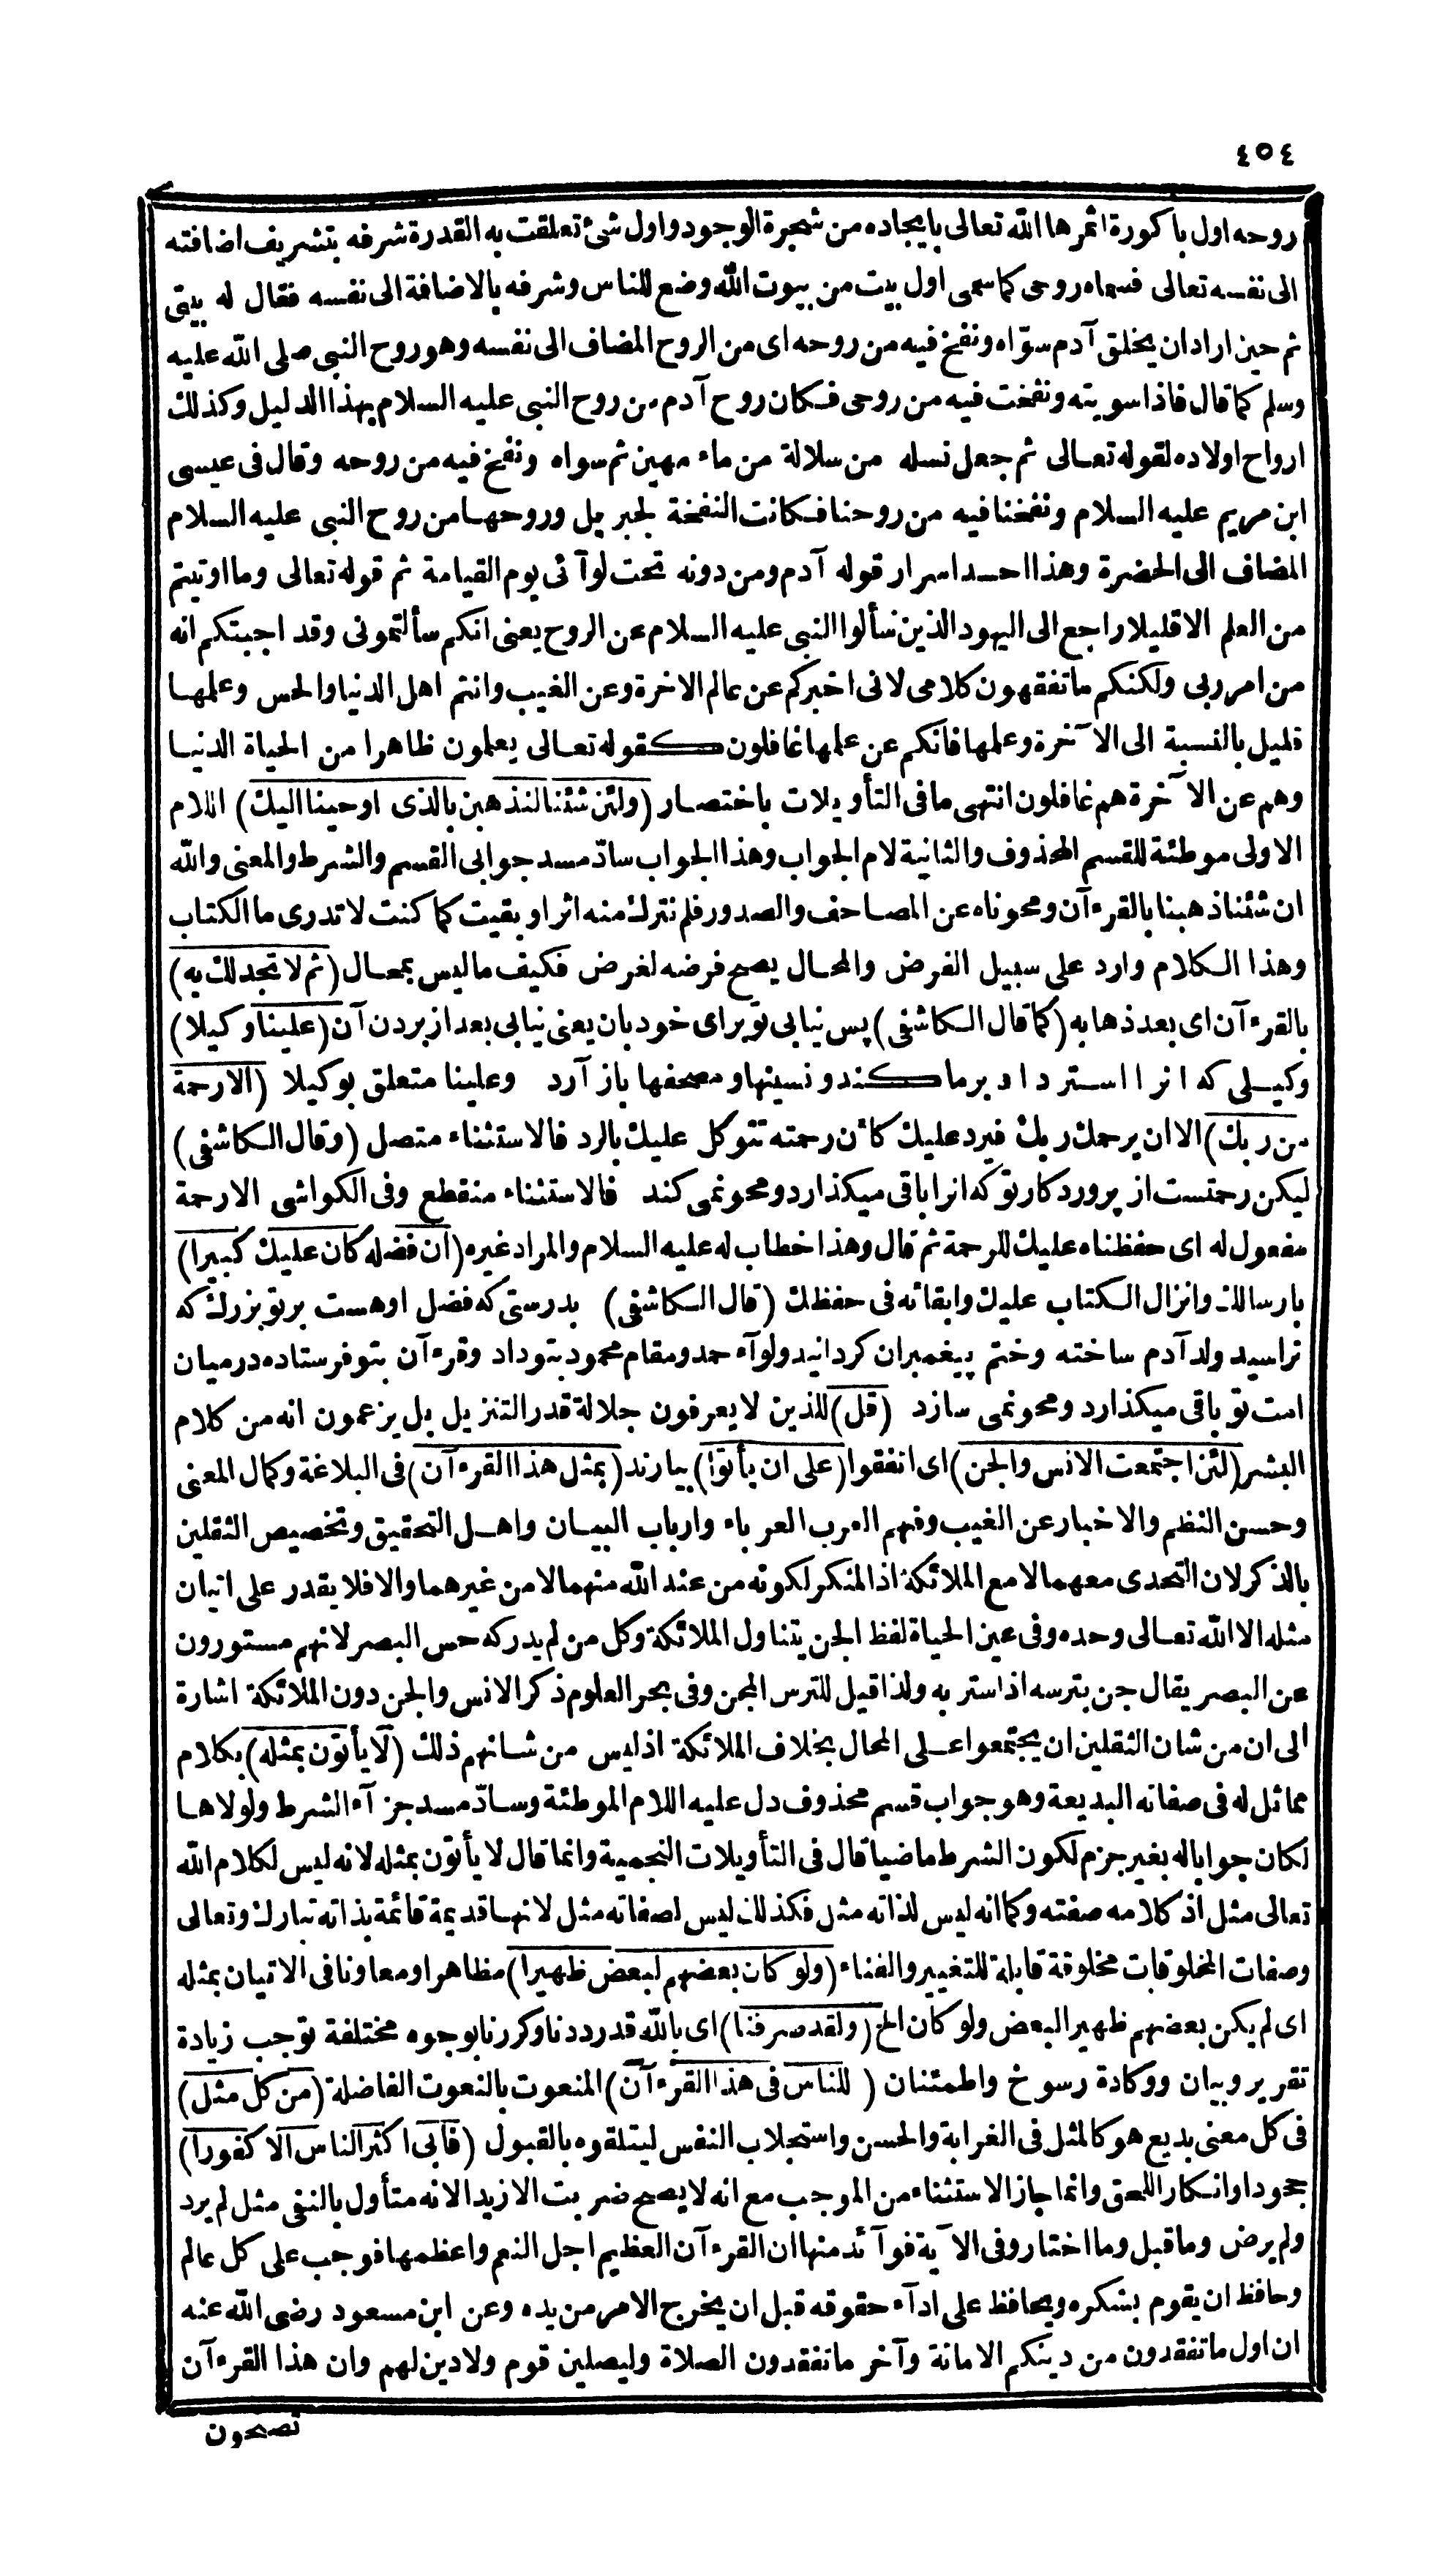 ٤٥٤
روحه اول باكورة اثمرها الله تعالى بايجاده من شجرة الوجود واول شئ تعلقت به القدرة شرفه بتشريف اضافته
الى نفسه تعالى فسماه روحى كما سمى اول بيت من بيوت الله وضع للناس وشرفه بالاضافة الى نفسه فقال له بيتى
ثم حين اراد ان يخلق آدم سوّاه ونفخ فيه من روحه اى من الروح المضاف الى نفسه وهو روح النبى صلى الله عليه
وسلم كما قال فاذا سويته ونفخت فيه من روحى فكان روح آدم من روح النبى عليه السلام بهذا الدليل وكذلك
ارواح اولاده لقوله تعالى ثم جعل نسله من سلالة من ماء مهين ثم سواه ونفخ فيه من روحه وقال فى عيسى
ابن مريم عليه السلام ونفخنا فيه من روحنا فكانت النفخة لجبريل وروحها من روح النبى عليه السلام
المضاف الى الحضرة وهذا احد اسرار قوله آدم ومن دونه تحت لوآئى يوم القيامة ثم قوله تعالى وما اوتيتم
من العلم الا قليلا راجع الى اليهود الذين سألوا النبى عليه السلام عن الروح يعنى انكم سألتمونى وقد اجبتكم انه
من امر ربى ولكنكم ما تفقهون كلامى لانى اخبركم عن عالم الاخرة وعن الغيب وانتم اهل الدنيا والحس وعلمها
قليل بالنسبة الى الآخرة وعلمها فانكم عن علمها غافلون كقوله تعالى يعلمون ظاهرا من الحياة الدنيا
وهم عن الآخرة هم غافلون انتهى ما فى التأويلات باختصار (ولئن شئنا لنذهبن بالذى اوحينا اليك) اللام
الاولى موطئة للقسم المحذوف والثانية لام الجواب وهذا الجواب سادّ مسد جوابى القسم والشرط والمعنى والله
ان شئنا ذهبنا بالقرءآن ومحوناه عن المصاحف والصدور فلم نترك منه اثرا وبقيت كما كنت لا تدرى ما الكتاب
وهذا الكلام وارد على سبيل الفرض والمحال يصح فرضه لغرض فكيف ما ليس بمحال (ثم لا تجد لك به)
بالقرءآن اى بعد ذهابه (كما قال الكاشفى) پس نيابى تو براى خود بان يعنى نيابى بعد از بردن آن (علينا وكيلا)
وكيلى كه انرا استرداد بر ما كند و نسينها و مصحفها باز آرد وعلينا متعلق بوكيلا (الا رحمة
من ربك) الا ان يرحمك ربك فيرد عليك كأن رحمته تتوكل عليك بالرد فالاستثناء متصل (وقال الكاشفى)
ليكن رحمتست از پروردكار تو كه انرا باقى ميكذارد ومحو نمى كند فالاستثناء منقطع وفى الكواشى الا رحمة
مفعول له اى حفظناه عليك للرحمة ثم قال وهذا خطاب له عليه السلام والمراد غيره (ان فضله كان عليك كبيرا)
بارسالك وانزال الكتاب عليك وابقائه فى حفظك (قال الكاشفى) بدرستى كه فضل او هست بر تو بزرك كه
ترا سيد ولد آدم ساخته وختم پيغمبران كردانيد ولوآء حمد ومقام محمود بتو داد وقرءآن بتو فرستاده در ميان
امت تو باقى ميكذارد ومحو نمى سازد (قل) للذين لا يعرفون جلالة قدر التنزيل بل يزعمون انه من كلام
البشر (لئن اجتمعت الانس والجن) اى اتفقوا (على ان يأتوا) بيارند (بمثل هذا القرءآن) فى البلاغة وكمال المعنى
وحسن النظم والاخبار عن الغيب وفيهم العرب العرباء وارباب البيان واهل التحقيق وتخصيص الثقلين
بالذكر لان التحدى معهما لا مع الملائكة اذ المنكر لكونه من عند الله منهما لا من غيرهما والا فلا يقدر على اتيان
مثله الا الله تعالى وحده وفى عين الحياة لفظ الجن يتناول الملائكة وكل من لم يدركه حس البصر لانهم مستورون
عن البصر يقال جن بترسه اذا ستر به ولذا قيل للترس المجن وفى بحر العلوم ذكر الانس والجن دون الملائكة اشارة
الى ان من شان الثقلين ان يجتمعوا على المحال بخلاف الملائكة اذ ليس من شانهم ذلك (لا يأتون بمثله) بكلام
مماثل له فى صفاته البديعة وهو جواب قسم محذوف دل عليه اللام الموطئة وسادّ مسد جزآء الشرط ولولاها
لكان جوابا له بغير جزم لكون الشرط ماضيا قال فى التأويلات النجمية وانما قال لا يأتون بمثله لانه ليس لكلام الله
تعالى مثل اذ كلامه صفته وكما انه ليس لذاته مثل فكذلك ليس لصفاته مثل لانها قديمة قائمة بذاته تبارك وتعالى
وصفات المخلوقات مخلوقة قابلة للتغيير والفناء (ولو كان بعضهم لبعض ظهيرا) مظاهرا ومعاونا فى الاتيان بمثله
اى لم يكن بعضهم ظهير البعض ولو كان الخ (ولقد صرفنا) اى بالله قد رددنا وكررنا بوجوه مختلفة توجب زيادة
تقرير وبيان ووكادة رسوخ واطمئنان (للناس فى هذا القرءآن) المنعوت بالنعوت الفاضلة (من كل مثل)
فى كل معنى بديع هو كالمثل فى الغرابة والحسن واستجلاب النفس ليتلقوه بالقبول (فأبى اكثر الناس الا كفورا)
جحودا وانكارا للحق وانما جاز الاستثناء من الموجب مع انه لا يصح ضربت الا زيدا لانه متأول بالنفى مثل لم يرد
ولم يرض وما قبل وما اختار وفى الآية فوآئد منها ان القرءآن العظيم اجل النعم واعظمها فوجب على كل عالم
وحافظ ان يقوم بشكره ويحافظ على ادآء حقوقه قبل ان يخرج الامر من يده وعن ابن مسعود رضى الله عنه
ان اول ما تفقدون من دينكم الامانة وآخر ما تفقدون الصلاة وليصلين قوم ولا دين لهم وان هذا القرءآن
تصبحون